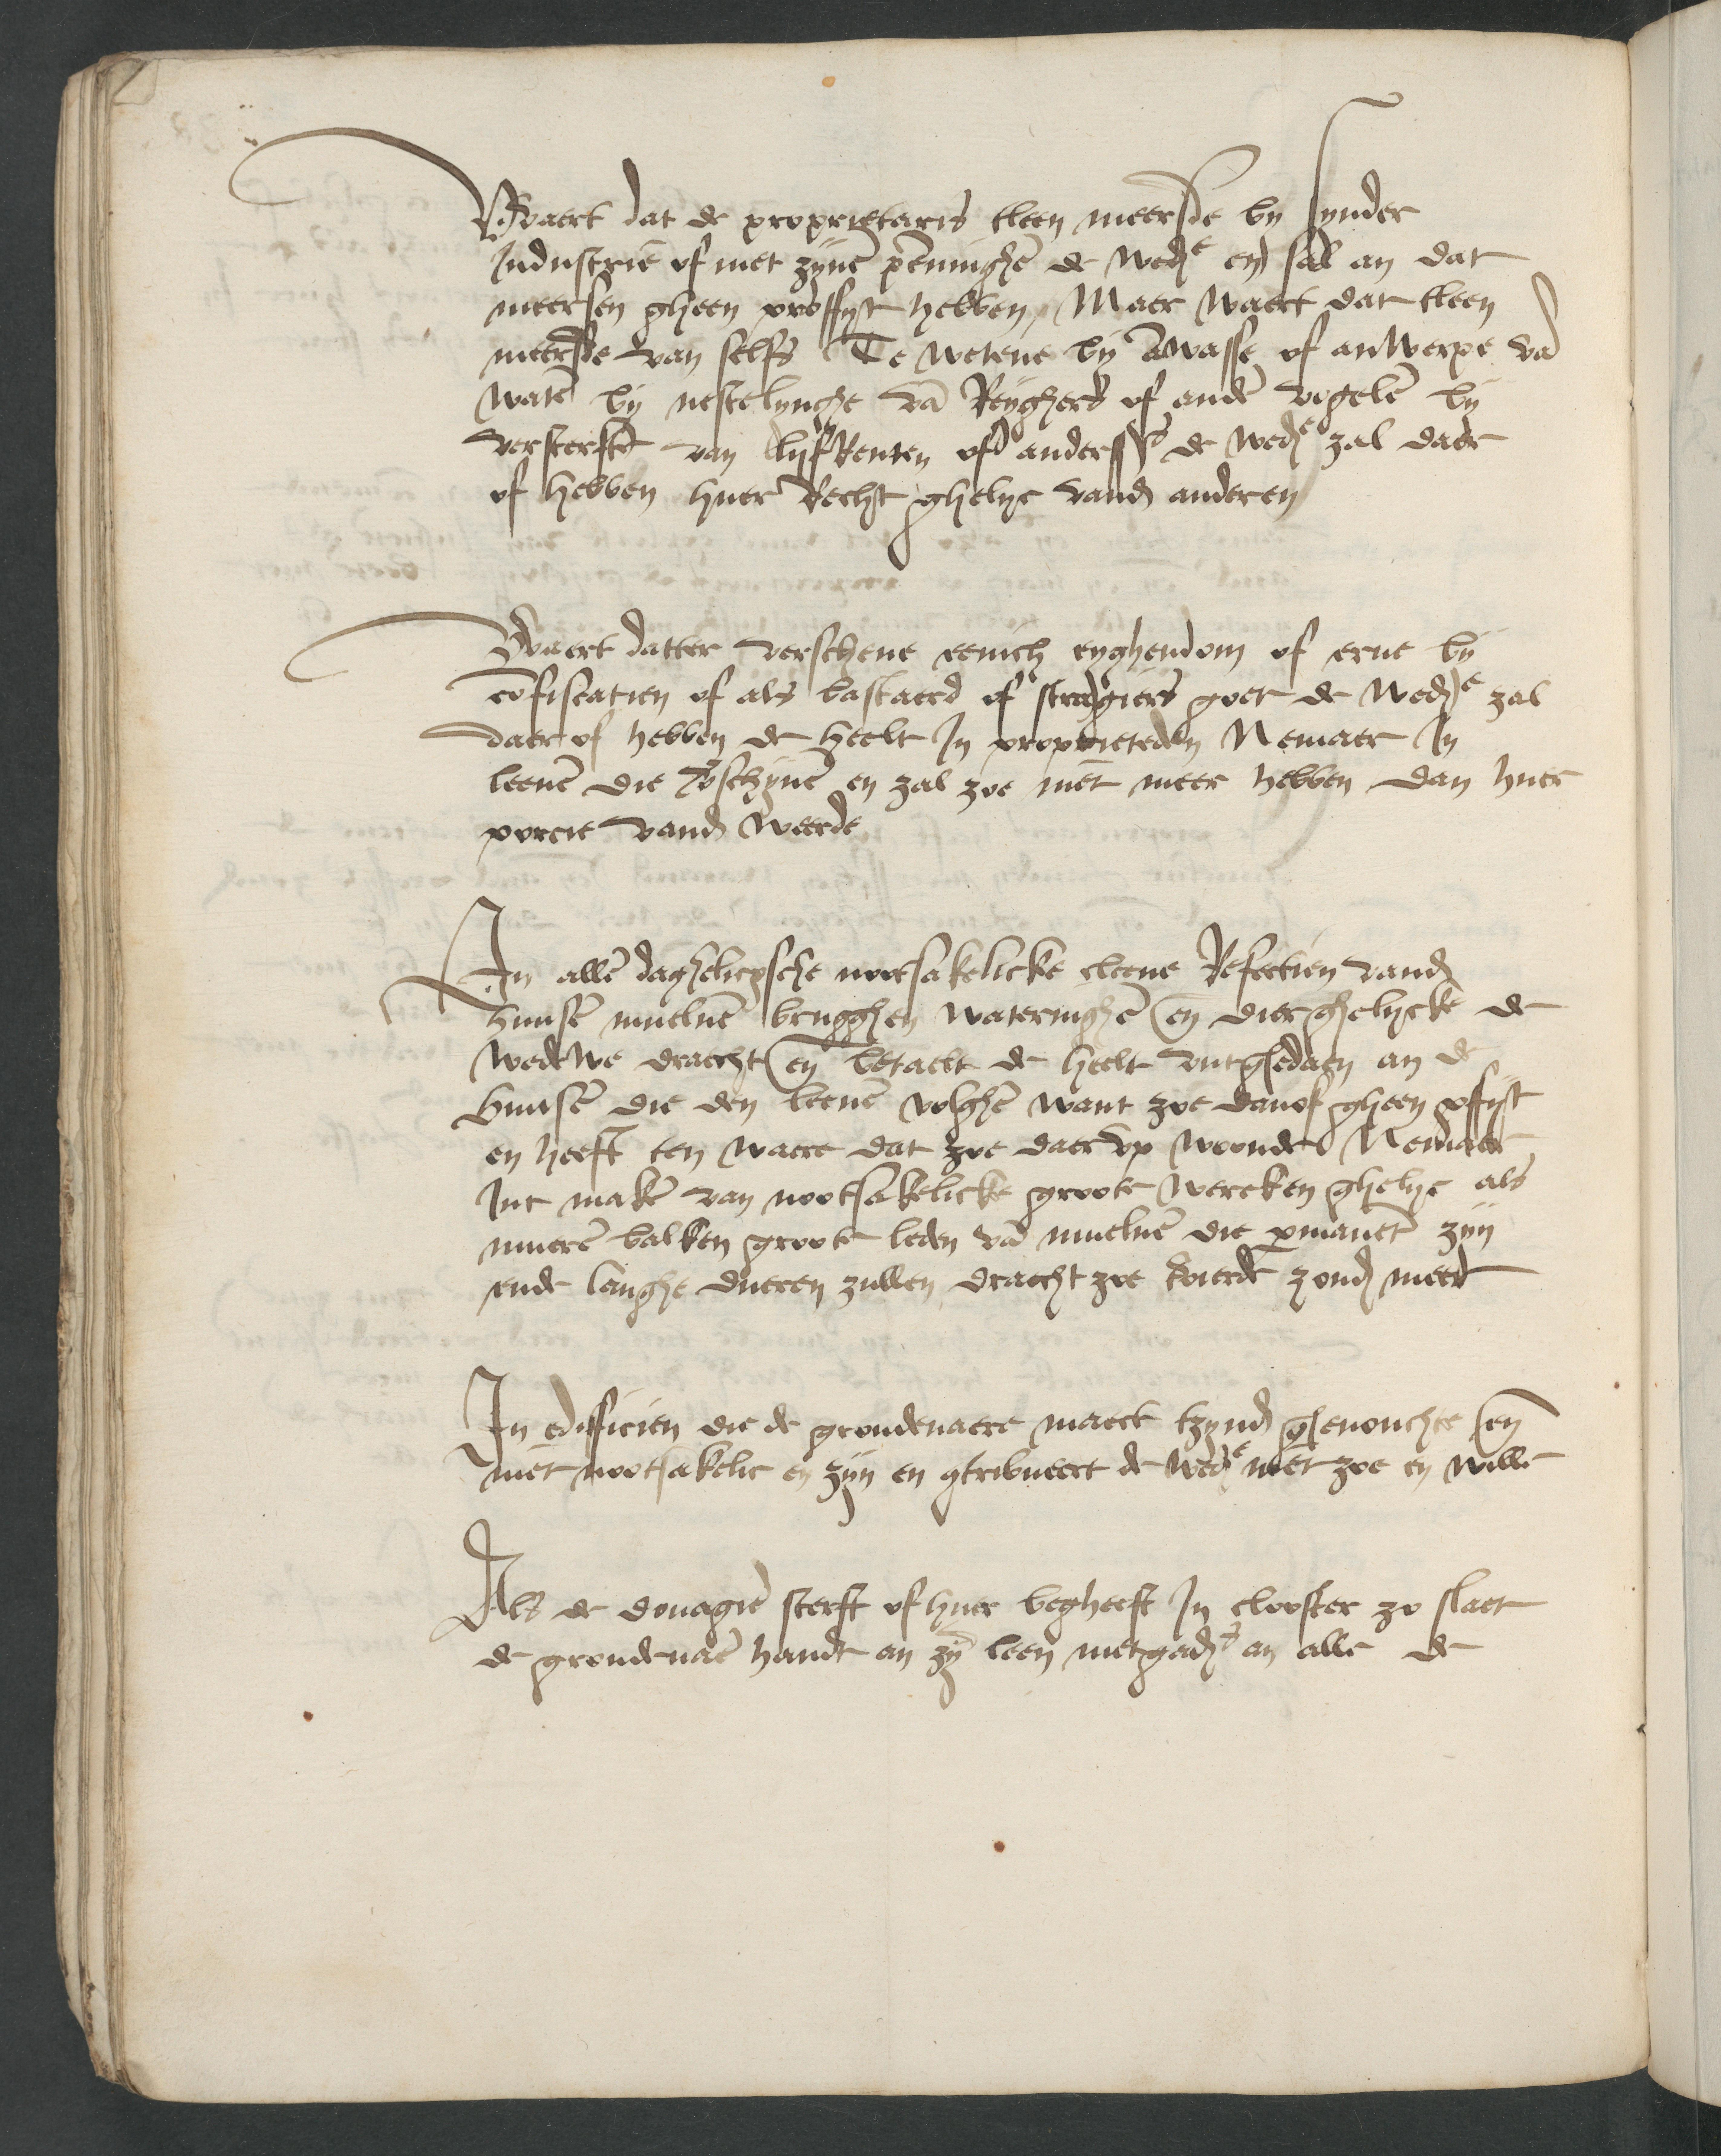 Waert dat de proprietaris tleen meersde by synder
Industrie of met zijnē pēninghē de wedᵉ en sal an dat
meersen gheen proffyt hebben / Maer waert dat tleen
meersde van selfs Te wetene by āwasse of anwerpe vā
watē by nestelynghe vā Reyghers of andē vogelē by
versterfte van lijfrenten of anderss de wedᵉ zal daer
of hebben huer Recht ghelyc vand anderen
Waert datter verschene eenich eyghendom of erve by
cōfiscatien of als bastaerd of straᵍgiers goet de wedᵉ zal
daer of hebben de heelt In proprieteden Nemaer In
leenē die v̄schynē en zal zoe niet meer hebben dan huer
porcie vand weerde
In allē daghelicxsche nootsakelicke cleene Refectien vand
huusē muelnē brugghen wateringhē en̄ dierghelycke de
wedewe draecht en̄ betaelt de heelt uutghedaen an de
huusē die den leenē volghē want zoe danof gheen pffijt
en heeft ten waere dat zoe daer up woonde Nemaer
Int makē van nootsakelicke groote wercken ghelyc als
muerē balken groote leden vā muelnē die pmanēt zijn
ende langhe dueren zullen draecht zoe tvierde zond meer
In edifficien die de grondenaere maect tzynd ghenouchte en̄
niet nootsakelic en zijn en ɔtribueert de wedᵉ niet zoe en wille
Als de douagiē sterft of huer begheeft In clooster zo slaet
de grondenaē handt an zȳ leen metgads an alle de